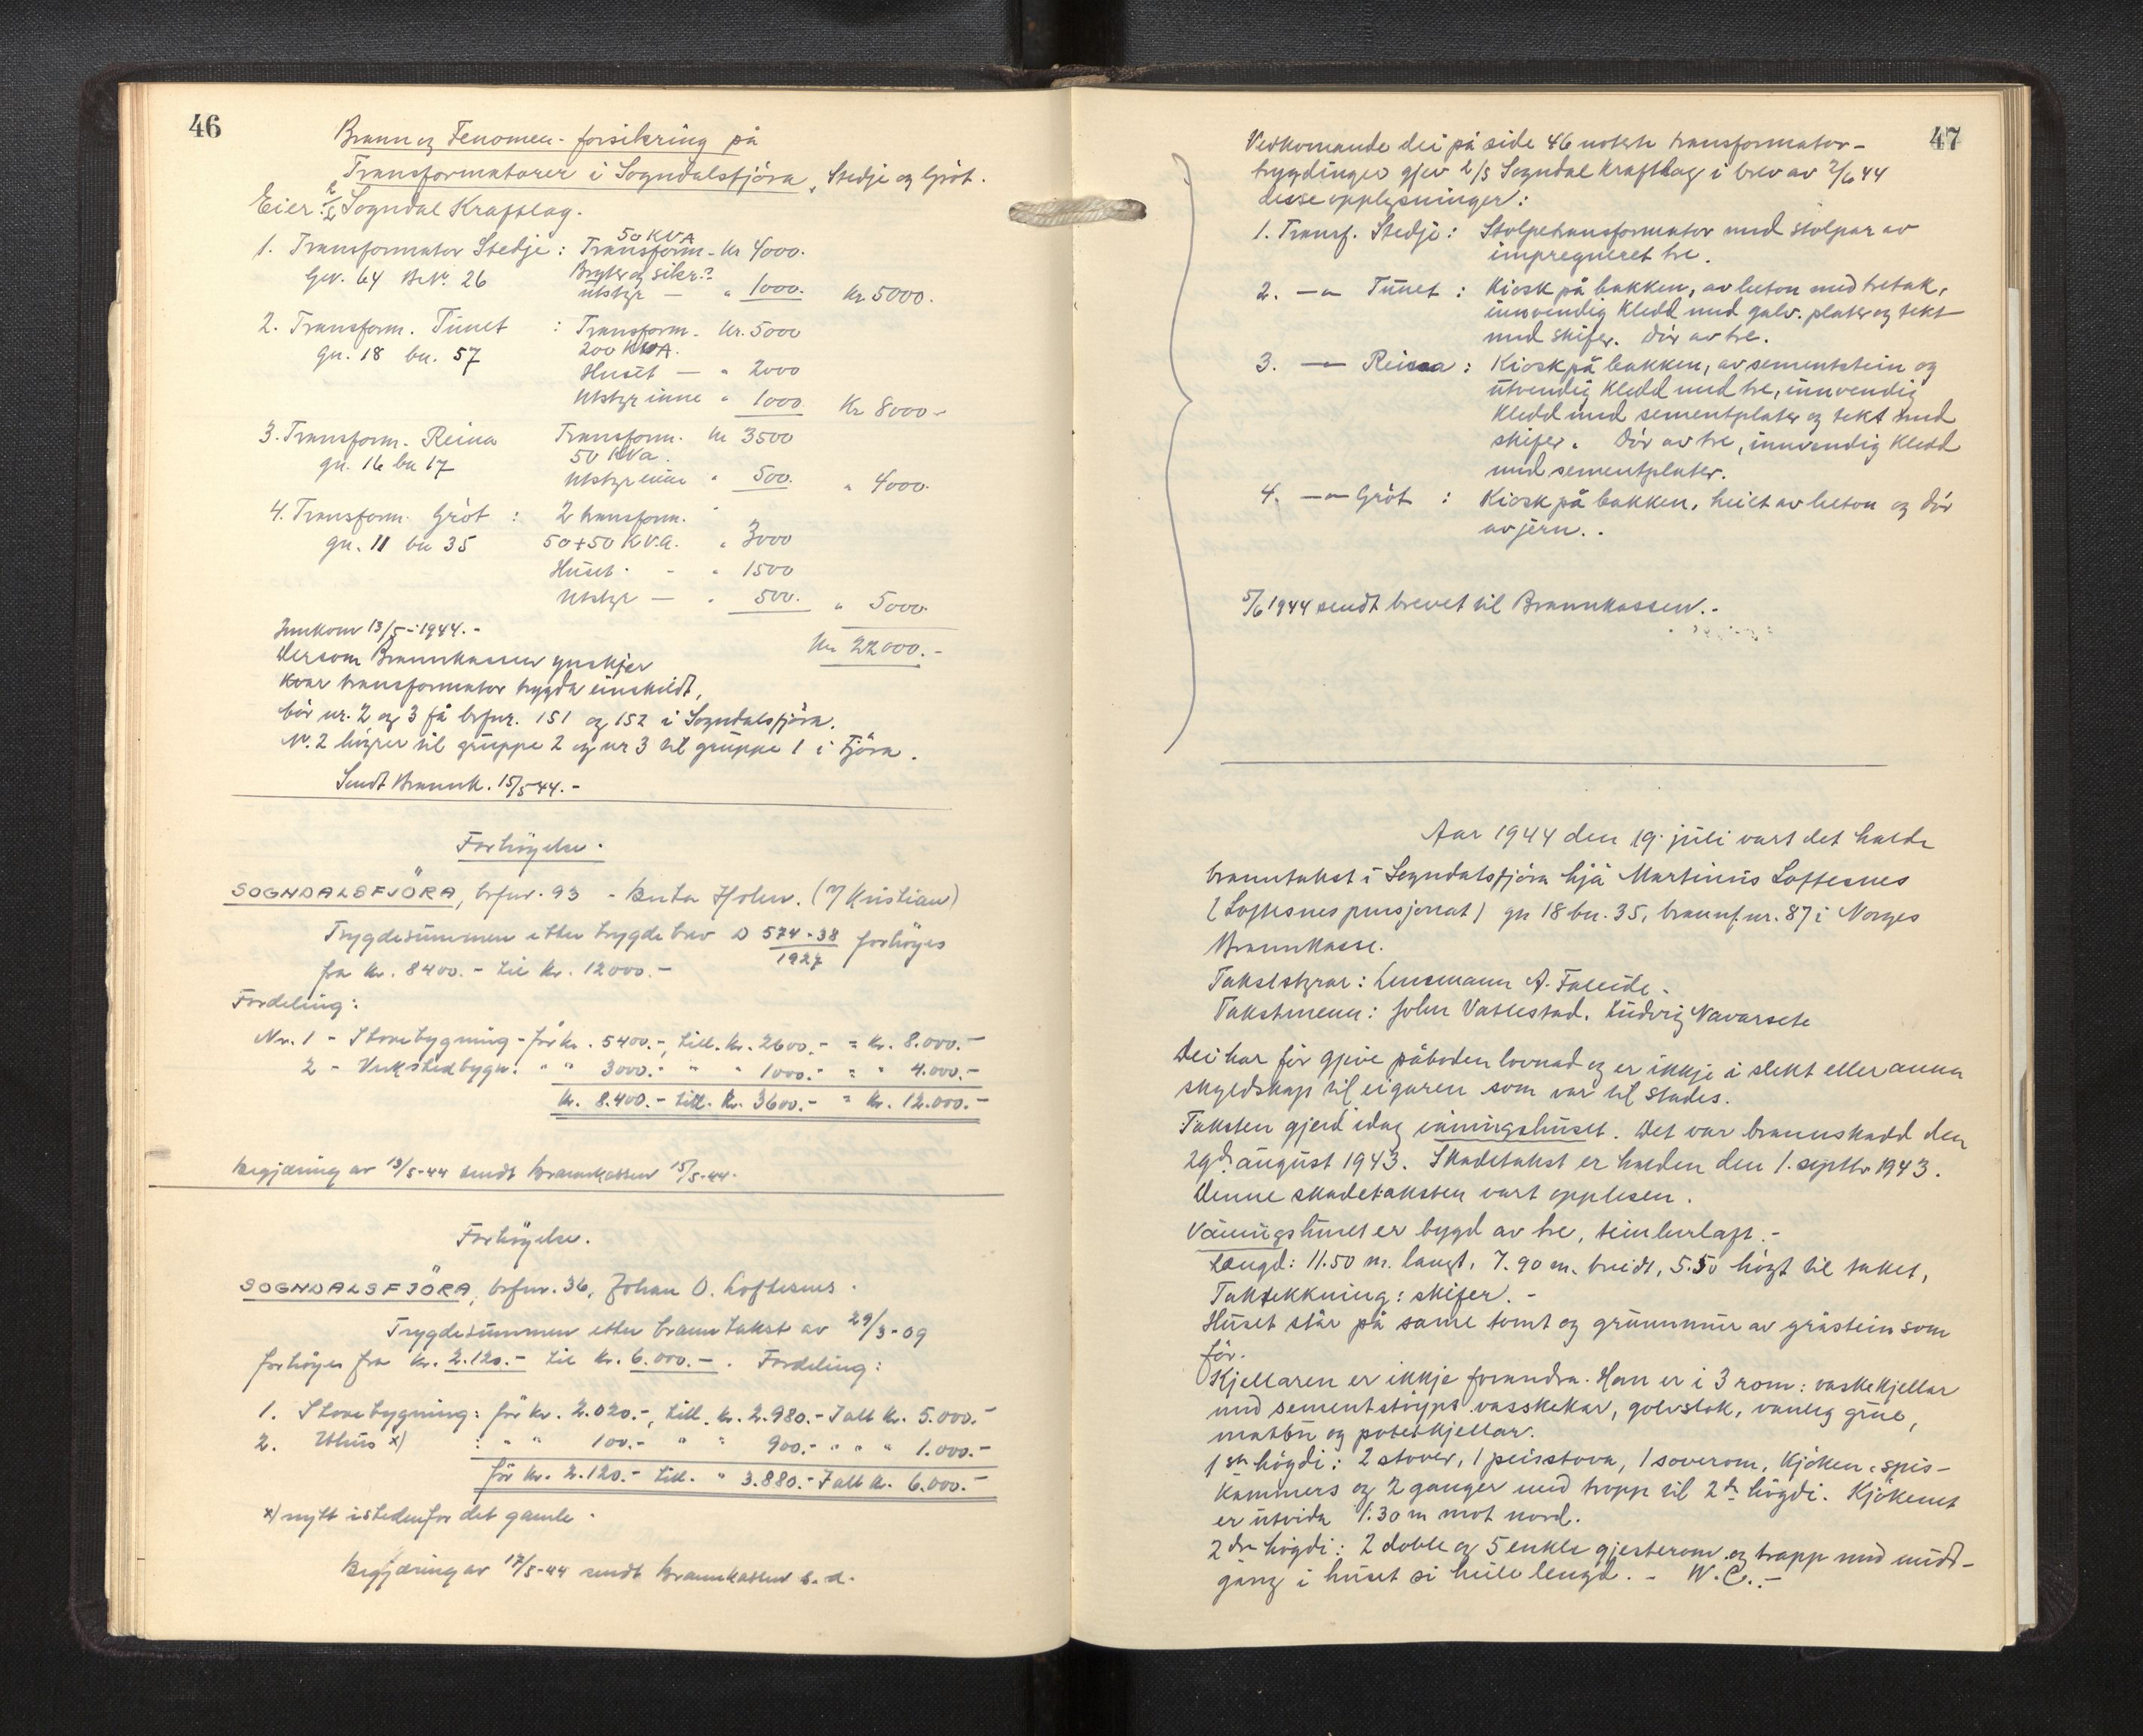 46
Brann og Fenomen-forsikring på
Transformatorer i Sogndalsfjöra, Stedje og Gröt.
Eier: A/L Sogndal Kraftlag.
1. Transformator Stedje: Transform. 50 KVA - kr 4000.
Gnr. 64 Bnr. 26 Bryter og sikr.?
utstyr — " 1000. kr 5000.
2. Transform. Tunet : Transform. kr. 5000
gn. 18 bn. 57 200 KVA.
Huset — " 2000
Utstyr inne " 1000 kr 8000 -
3. Transform. Reina Transform. kr 3500
gn. 16 bn 17 50 KVa.
Utstyr inne " 500. " 4000.
4. Transform. Gröt : 2 transform.
gn. 11 bn 35 50+50 KV.a. " 3000
Huset - " 1500
Utstyr — " 500. " 5000
Innkom 13/5-1944. - kr 22000.-
Dersom Brannkassen ynskjer
kvar transformator trygda einskildt,
bör nr. 2 og 3 få brfnr. 151 og 152 i Sogndalsfjöra.
Nr. 2 höyrer til gruppe 2 og nr 3 til gruppe 1 i Fjöra.
Sendt Brannk. 15/5-44. -
Forhöyelse.
SOGNDALSFJÖRA, brfnr. 93 - Berta Holen. (M Kristian)
Trygdesummen etter trygdebrev D 574-38/1927 forhöyes
fra kr. 8400.- til kr. 12000.-
Fordeling:
Nr. 1 - Stovebygning - för kr. 5400.-, till. kr. 2600.- = kr. 8.000.-
2 - Verkstedbygn. " " 3000.- " " 1000.- = " 4.000.-
kr. 8.400.- till. kr. 3600.- = kr. 12.000.-
Begjæring av 13/5-44 sendt Brannkassen 15/5-44.
Forhöyelse.
SOGNDALSFJÖRA, brfnr. 36, Johan O. Loftesnes.
Trygdesummen etter branntakst av 29/3-09
forhöyes fra kr. 2.120.- til kr. 6.000.-. Fordeling:
1. Stovebygning: för kr. 2.020.-, till. kr. 2.980.- I alt kr. 5.000.-
2. Uthus x) : " " 100.- " " 900.- " " " 1.000.-
för kr. 2.120.- till. " 3.880.- I alt kr. 6.000.-
x) nytt istedenfor det gamle.
Begjæring av 17/5-44 sendt Brannkassen s.d.
47
Vedkomande dei på side 46 noterte transformator-
bygdinger gjev A/S Sogndal Kraftlag i brev av 2/6 44
desse opplysninger:
1. Transf. Stedje: Stolpetransformator med stolpar av
impregneret tre.
2. —"— Tunet : Kiosk på bakken, av beton med tretak,
innvendig kledd med galv. plater og tekt
med skifer. Dör av tre.
3. —"— Reina : Kiosk på bakken, av sementstein og
utvendig kledd med tre, innvendig
kledd med sementplater og tekt med
skifer. Dör av tre, innvendig kledd
med sementplater.
4. —"— Gröt : Kiosk på bakken, heilt av beton og dör
av jern. .
5/6 1944 sendt brevet til Brannkassen.-
Aar 1944 den 19. juli vart det halde
branntakst i Sogndalsfjöra hjå Martinus Loftesnes
(Loftesnes pensjonat) gn 18 bn. 35, brannf.nr. 87 i Norges
Brannkasse.
Takststyrar: Lensmann A. Falleide.
Takstmenn: John Vatlestad. Ludvig Navarsete
Dei har för gjeve påboden lovnad og er ikkje i slekt eller anna
skyldskap til eigaren som var til stades.
Taksten gjeld idag våningshuset. Det var brannskadd den
29de august 1943. Skadetakst er halden den 1. septbr 1943.
Denne skadetaksten vart opplesen.
Våningshuset er bygd av tre, timberlaft. -
Lengd: 11.50 m. langt, 7.90 m. breidt, 5.50 högt til taket,
Taktekking: skifer. -
Huset står på same tomt og grunnmur av gråstein som
för.
Kjellaren er ikkje forandra. Han er i 3 rom: vaskekjellar
med sementstöypt vasskekar, golvslok, vanleg grue,
matbu og potetkjellar.
1ste högdi: 2 stover, 1 peisstova, 1 soverom, kjöken, spis-
kammers og 2 ganger med tropp til 2dre högdi. Kjökenet
er utvida 1.30 m mot nord.
2dre högdi: 2 doble og 5 enkle gjesterom og trapp med midt-
gang i huset si heile lengd. - W.C. -